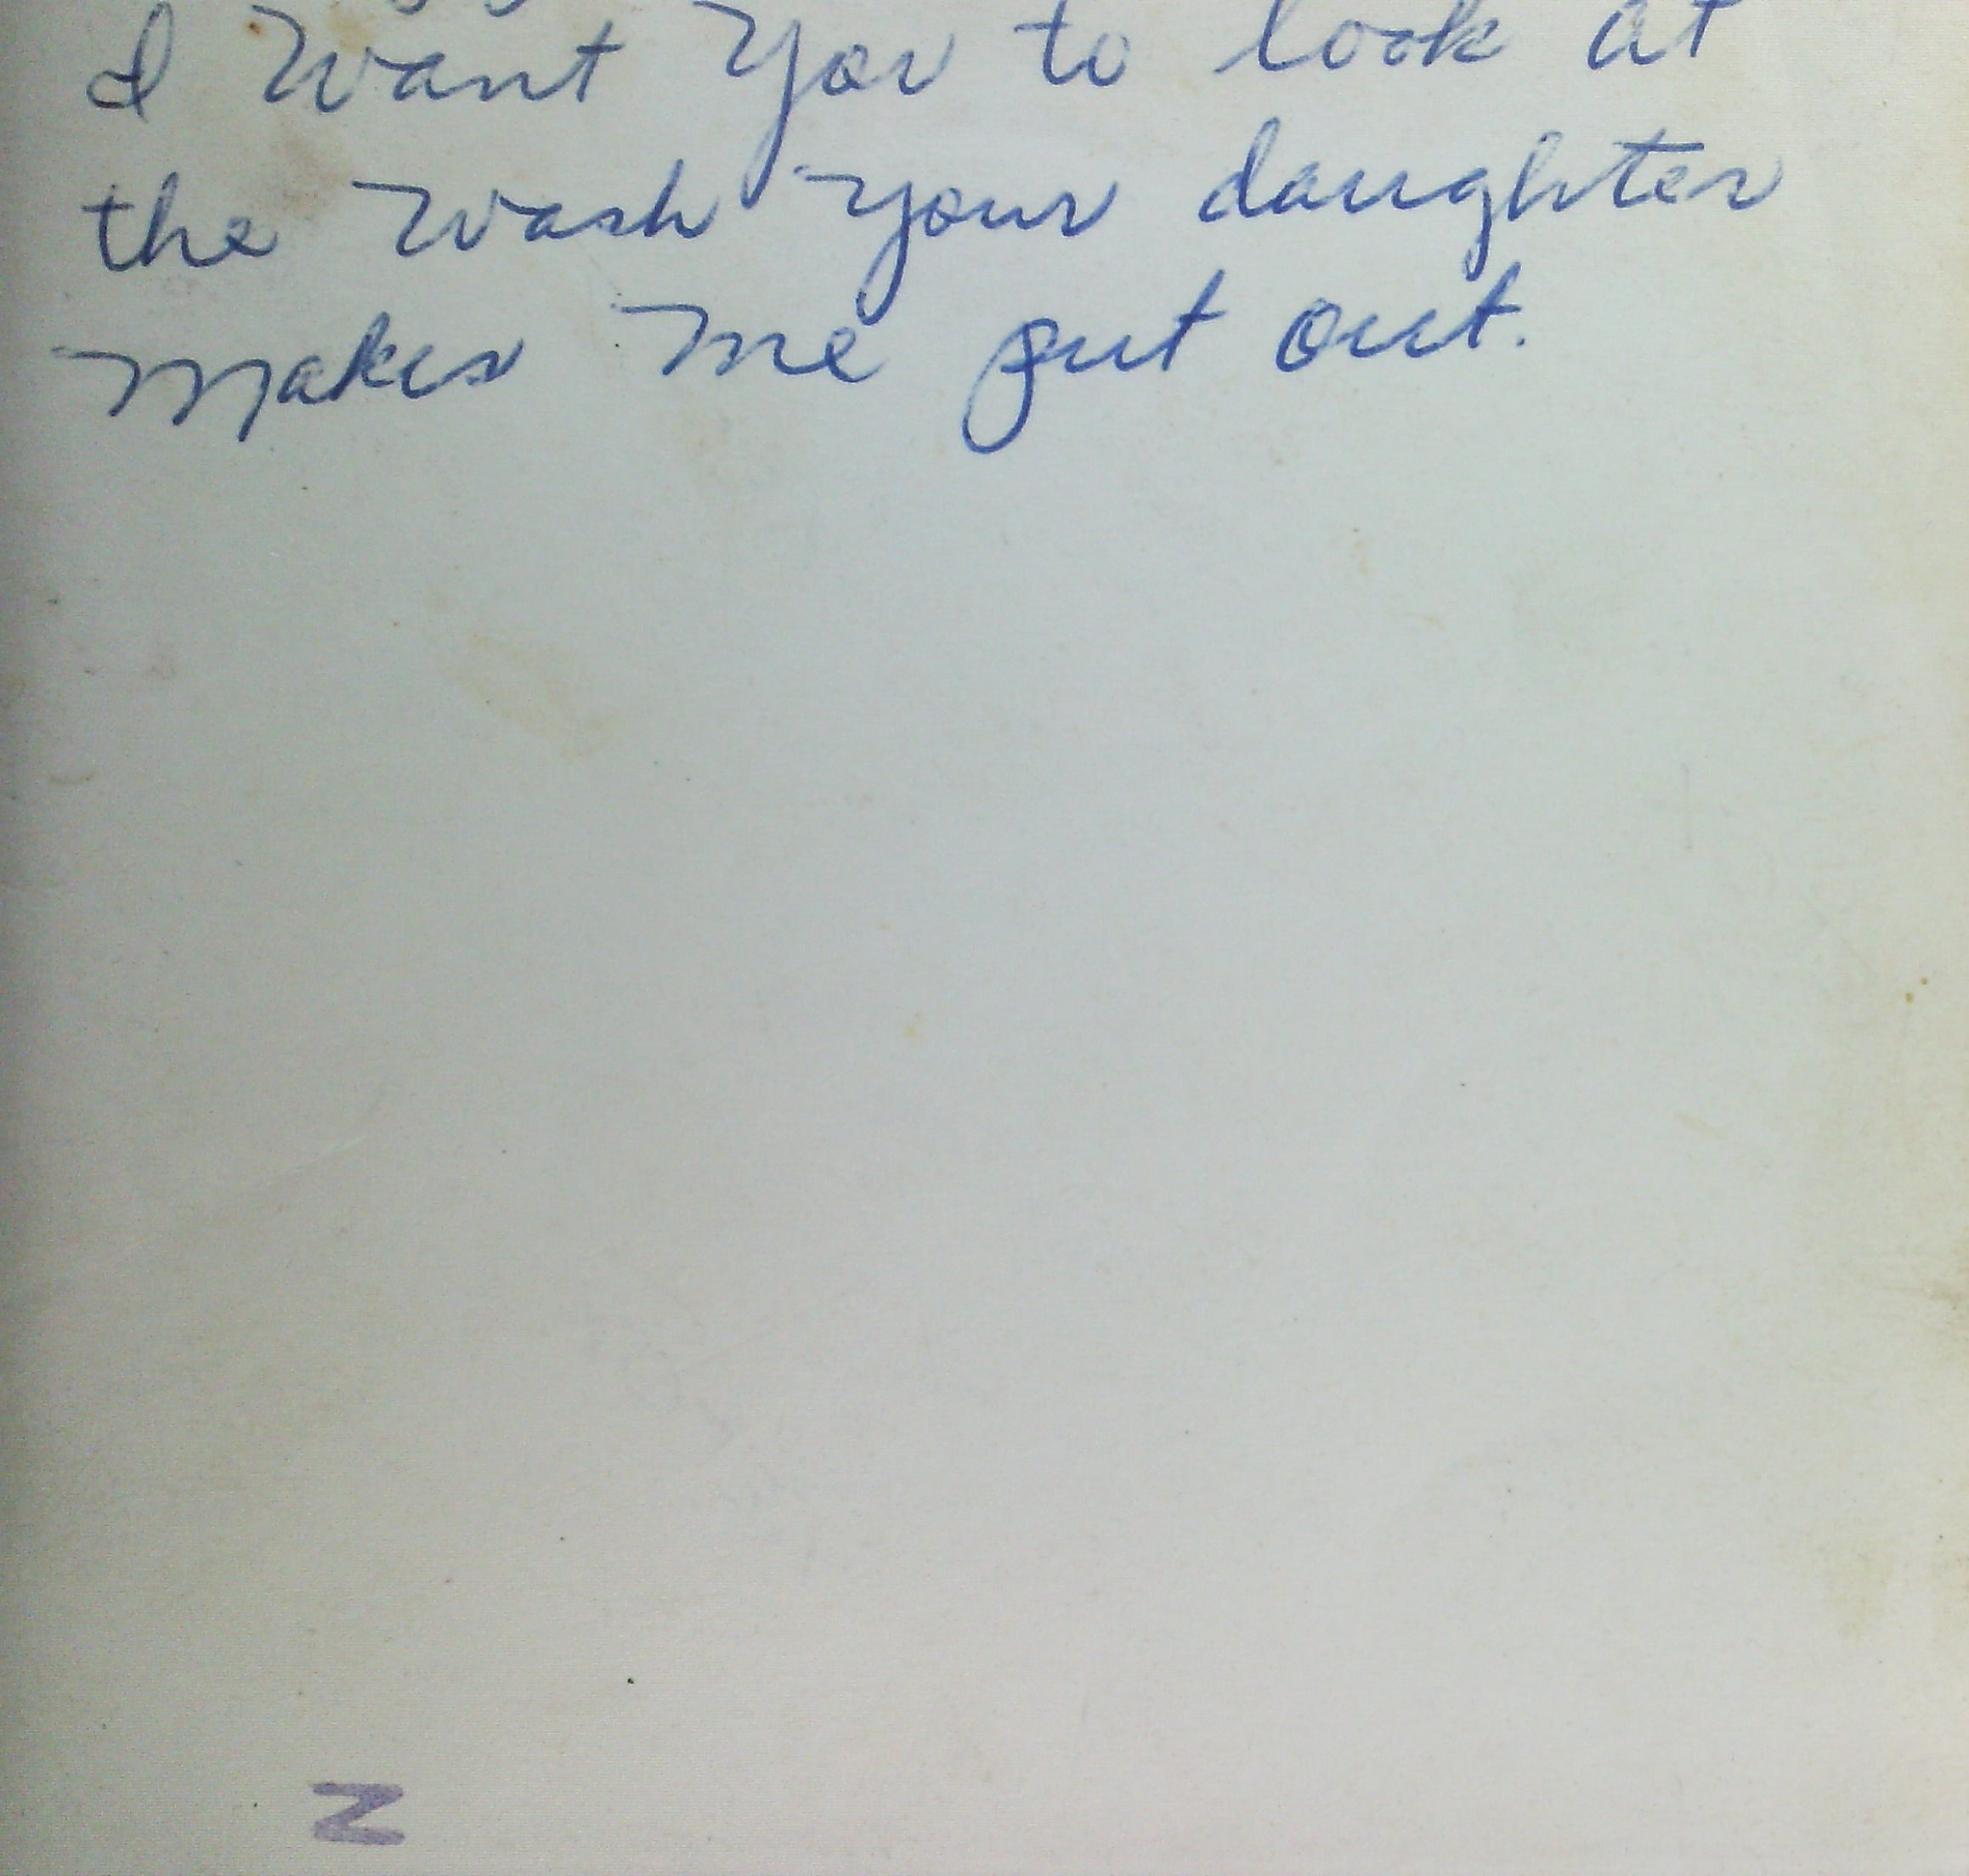 I want you to look at
the wash your daughter
makes me put out.
N